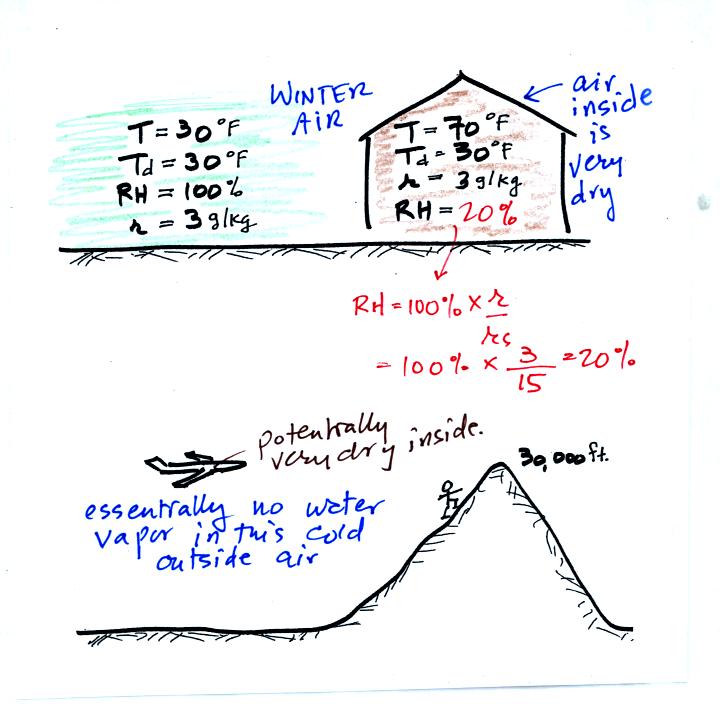 WINTER
AIR
T = 30°F
Td = 30°F
RH = 100%
r = 3 g/kg
T = 70°F
Td = 30°F
r = 3 g/kg
RH = 20%
air
inside
is
very
dry
RH = 100% × r
rs
= 100% × 3/15 = 20%
potentially
very dry inside.
30,000 ft.
essentially no water
vapor in this cold
outside air